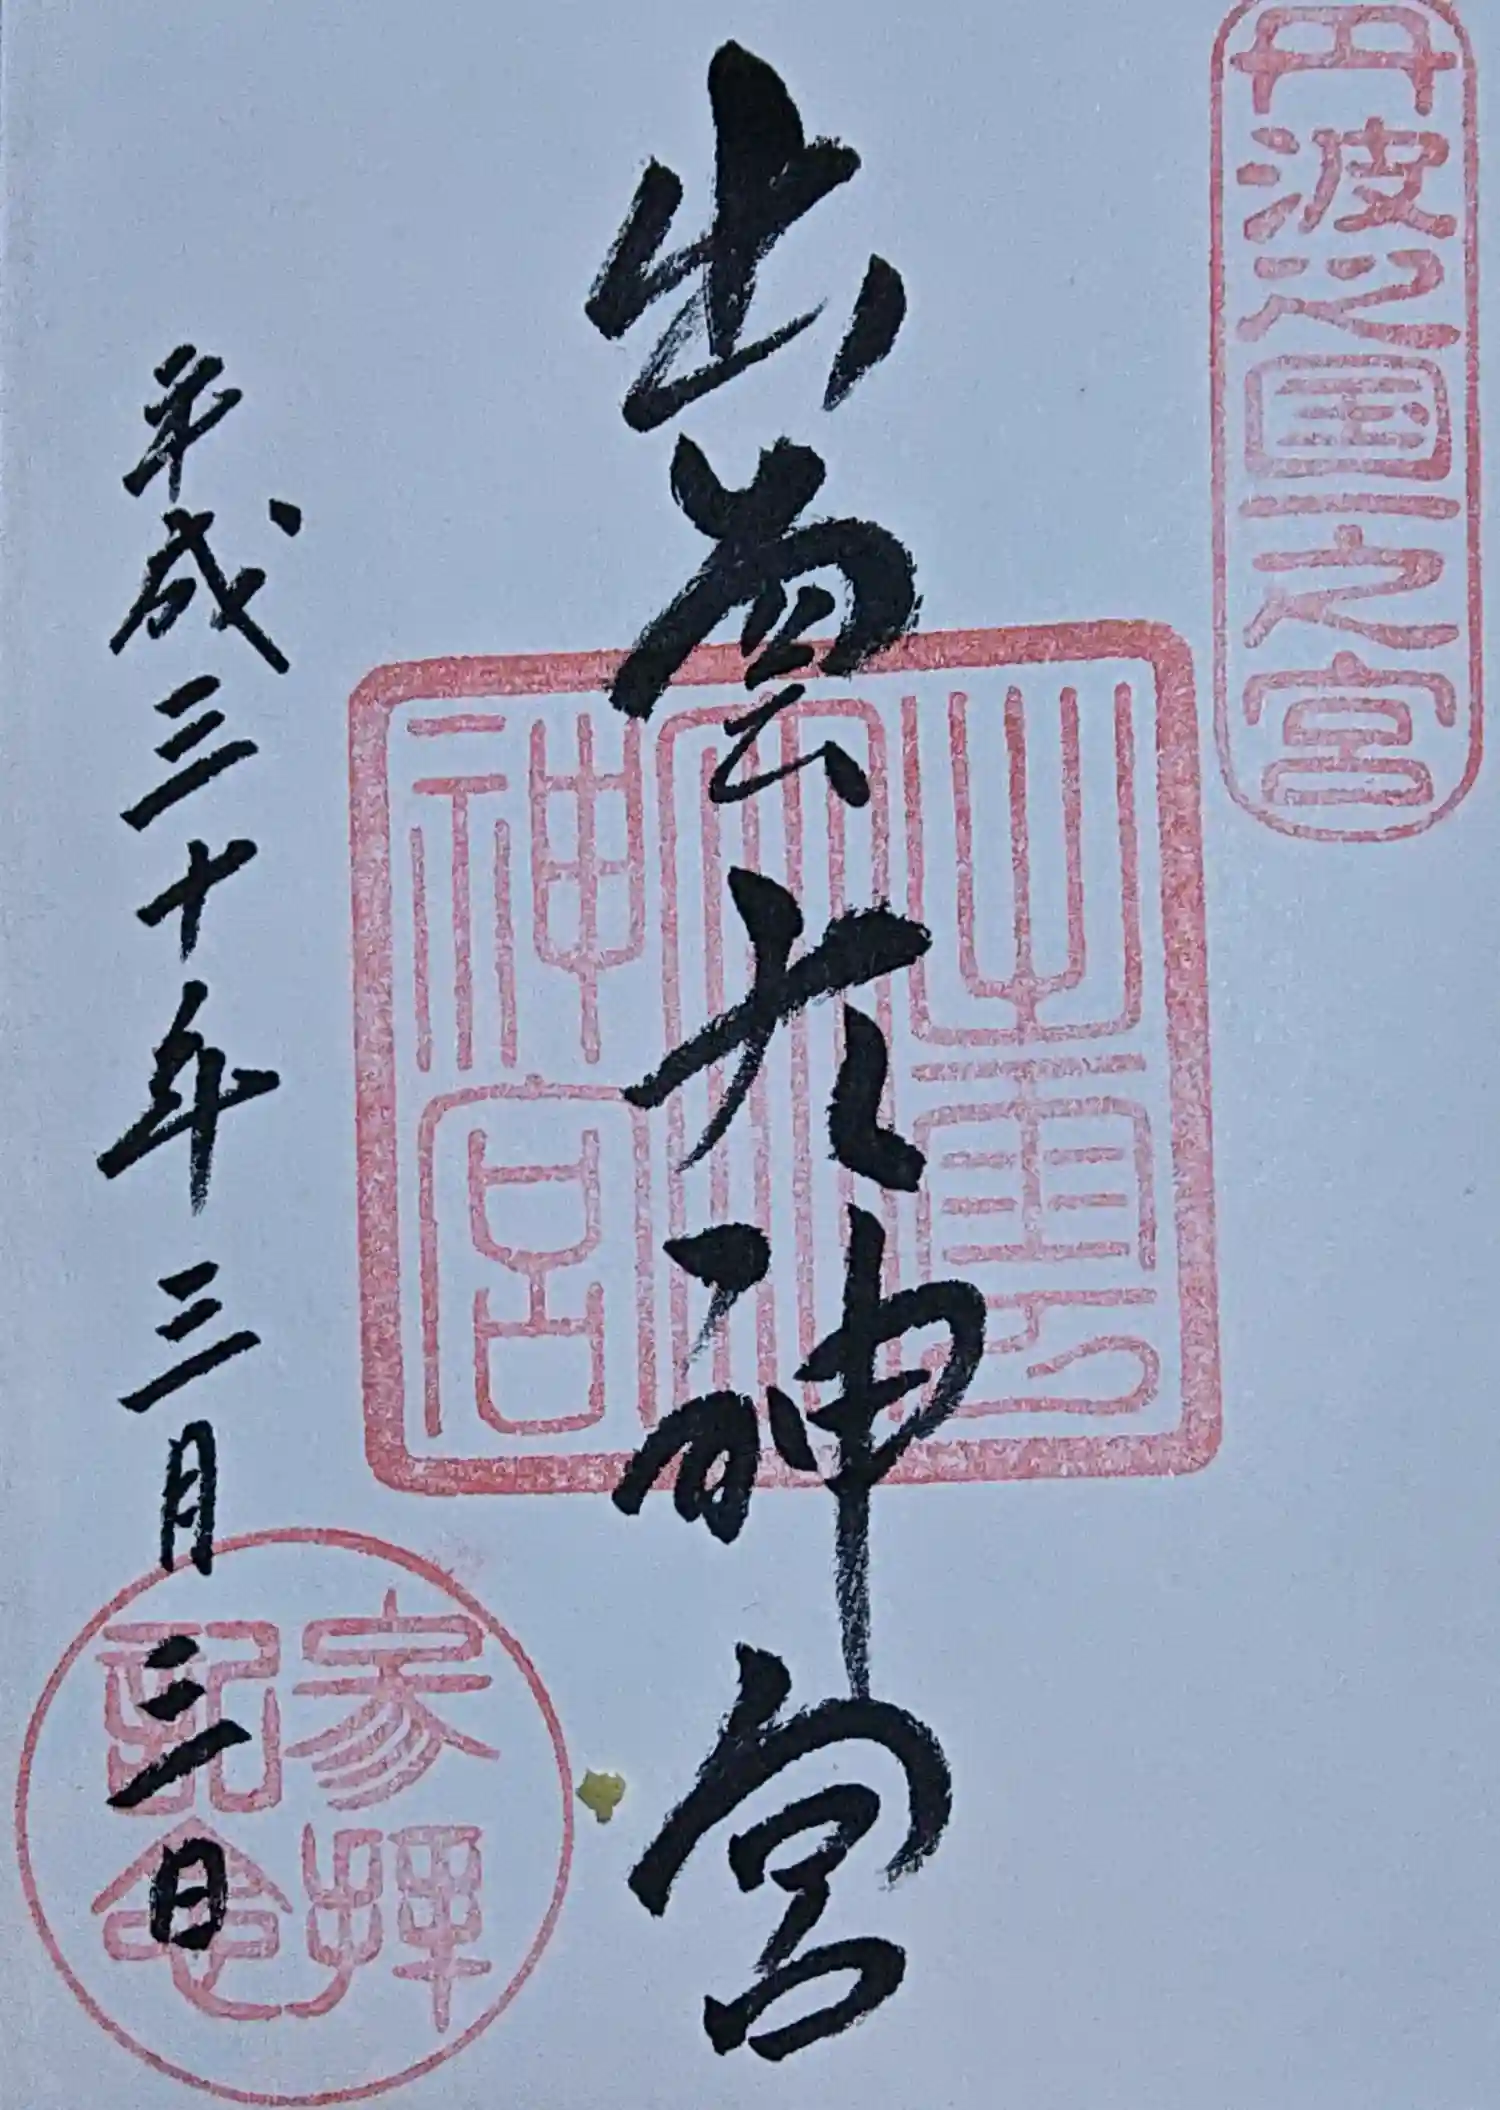 丹波之国一之宮
出雲大神宮
出雲
大
神宮
平成三十年三月三日
参拝
記念